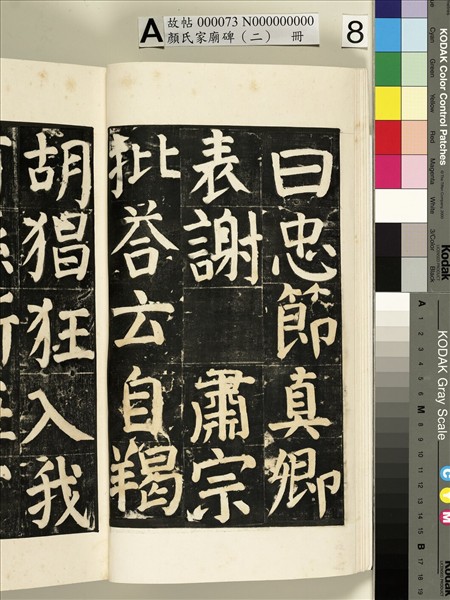 A
故帖 000073 N000000000
顏氏家廟碑（二） 冊
8
曰忠節真卿
表謝 肅宗
批荅云自羯
胡猖狂入我
KODAK Color Control Patches
Cyan
Green
Yellow
Red
Magenta
White
3/Color
Black
Kodak
KODAK Gray Scale
C
Y
M
A 1 2 3 4 5 6 M 8 9 10 11 12 13 14 15 B 17 18 19